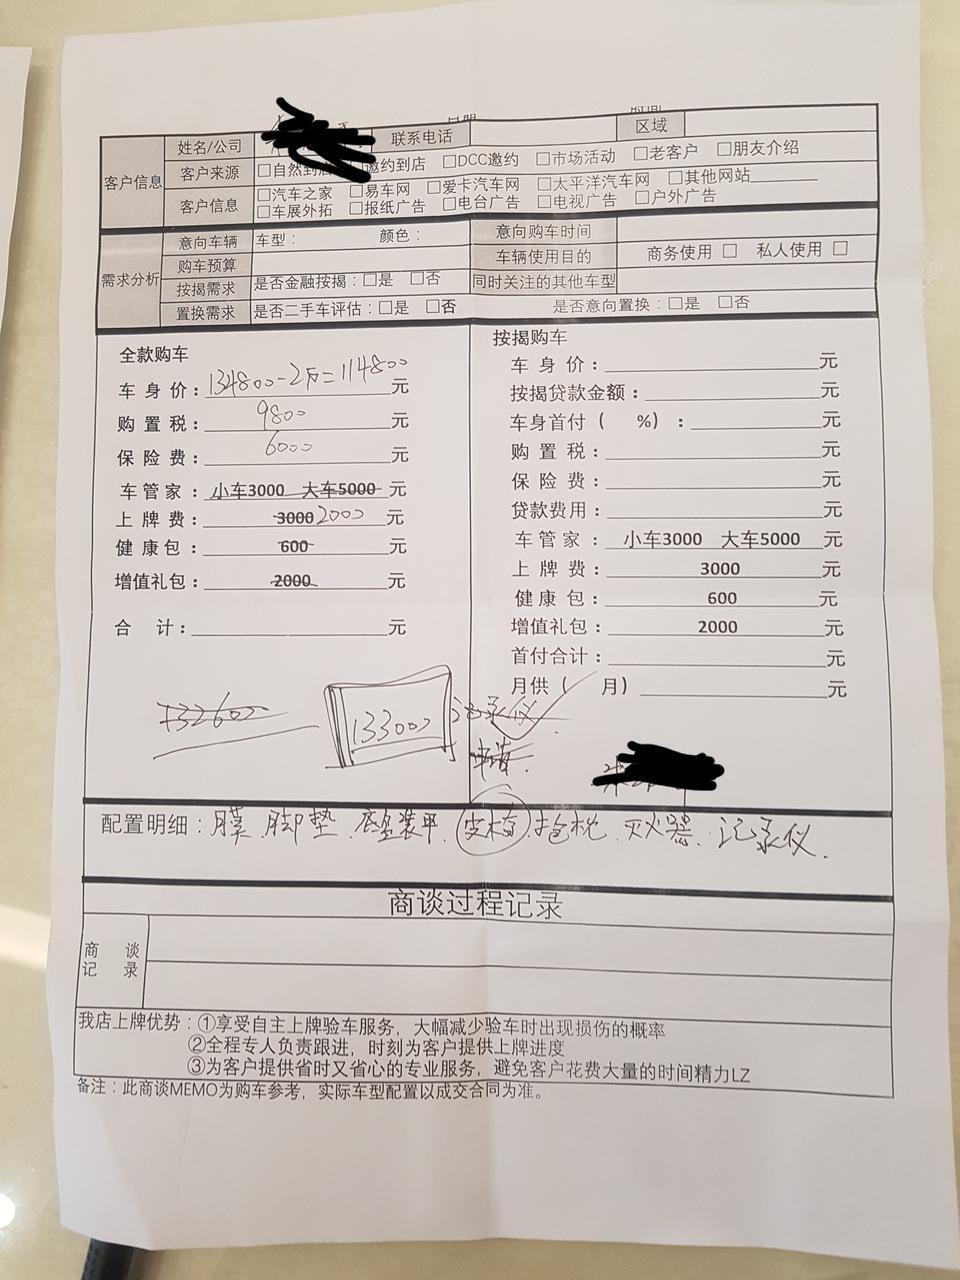 姓名/公司 联系电话 区域
客户信息
客户来源 □自然到店 邀约到店 □DCC邀约 □市场活动 □老客户 □朋友介绍
客户信息 □汽车之家 □易车网 □爱卡汽车网 □太平洋汽车网 □其他网站
□车展外拓 □报纸广告 □电台广告 □电视广告 □户外广告
需求分析
意向车辆 车型： 颜色： 意向购车时间
购车预算 车辆使用目的 商务使用 □ 私人使用 □
按揭需求 是否金融按揭：□是 □否 同时关注的其他车型
置换需求 是否二手车评估：□是 □否 是否意向置换：□是 □否
全款购车
车身价：134800-2万=114800 元
购置税：9800 元
保险费：6000 元
车管家：小车3000 大车5000 元
上牌费：3000 2000 元
健康包：600 元
增值礼包：2000 元
合计： 元
132600
133000 记录仪
申请.
按揭购车
车身价： 元
按揭贷款金额： 元
车身首付（ %）： 元
购置税： 元
保险费： 元
贷款费用： 元
车管家：小车3000 大车5000 元
上牌费：3000 元
健康包：600 元
增值礼包：2000 元
首付合计： 元
月供（ 月） 元
配置明细：膜 脚垫 底盘装甲. 抱枕. 灭火器. 记录仪.
商谈过程记录
商谈
记录
我店上牌优势：①享受自主上牌验车服务，大幅减少验车时出现损伤的概率
②全程专人负责跟进，时刻为客户提供上牌进度
③为客户提供省时又省心的专业服务，避免客户花费大量的时间精力LZ
备注：此商谈MEMO为购车参考，实际车型配置以成交合同为准。